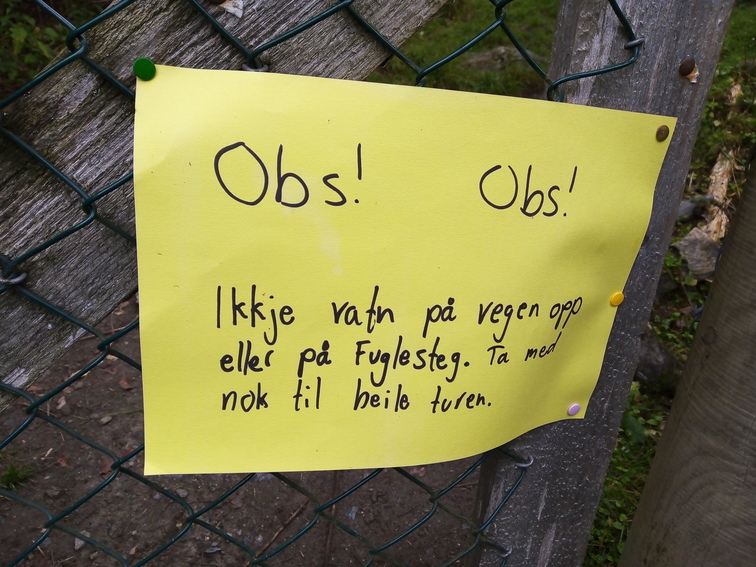 Obs! Obs!
Ikkje vatn på vegen opp
eller på Fuglesteg. Ta med
nok til heile turen.